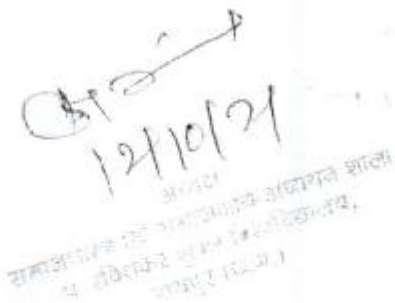 12/10/21
अध्यक्ष
समाजशास्त्र एवं समाजकार्य अध्ययन शाला
पं. रविशंकर शुक्ल विश्वविद्यालय,
रायपुर (छ.ग.)